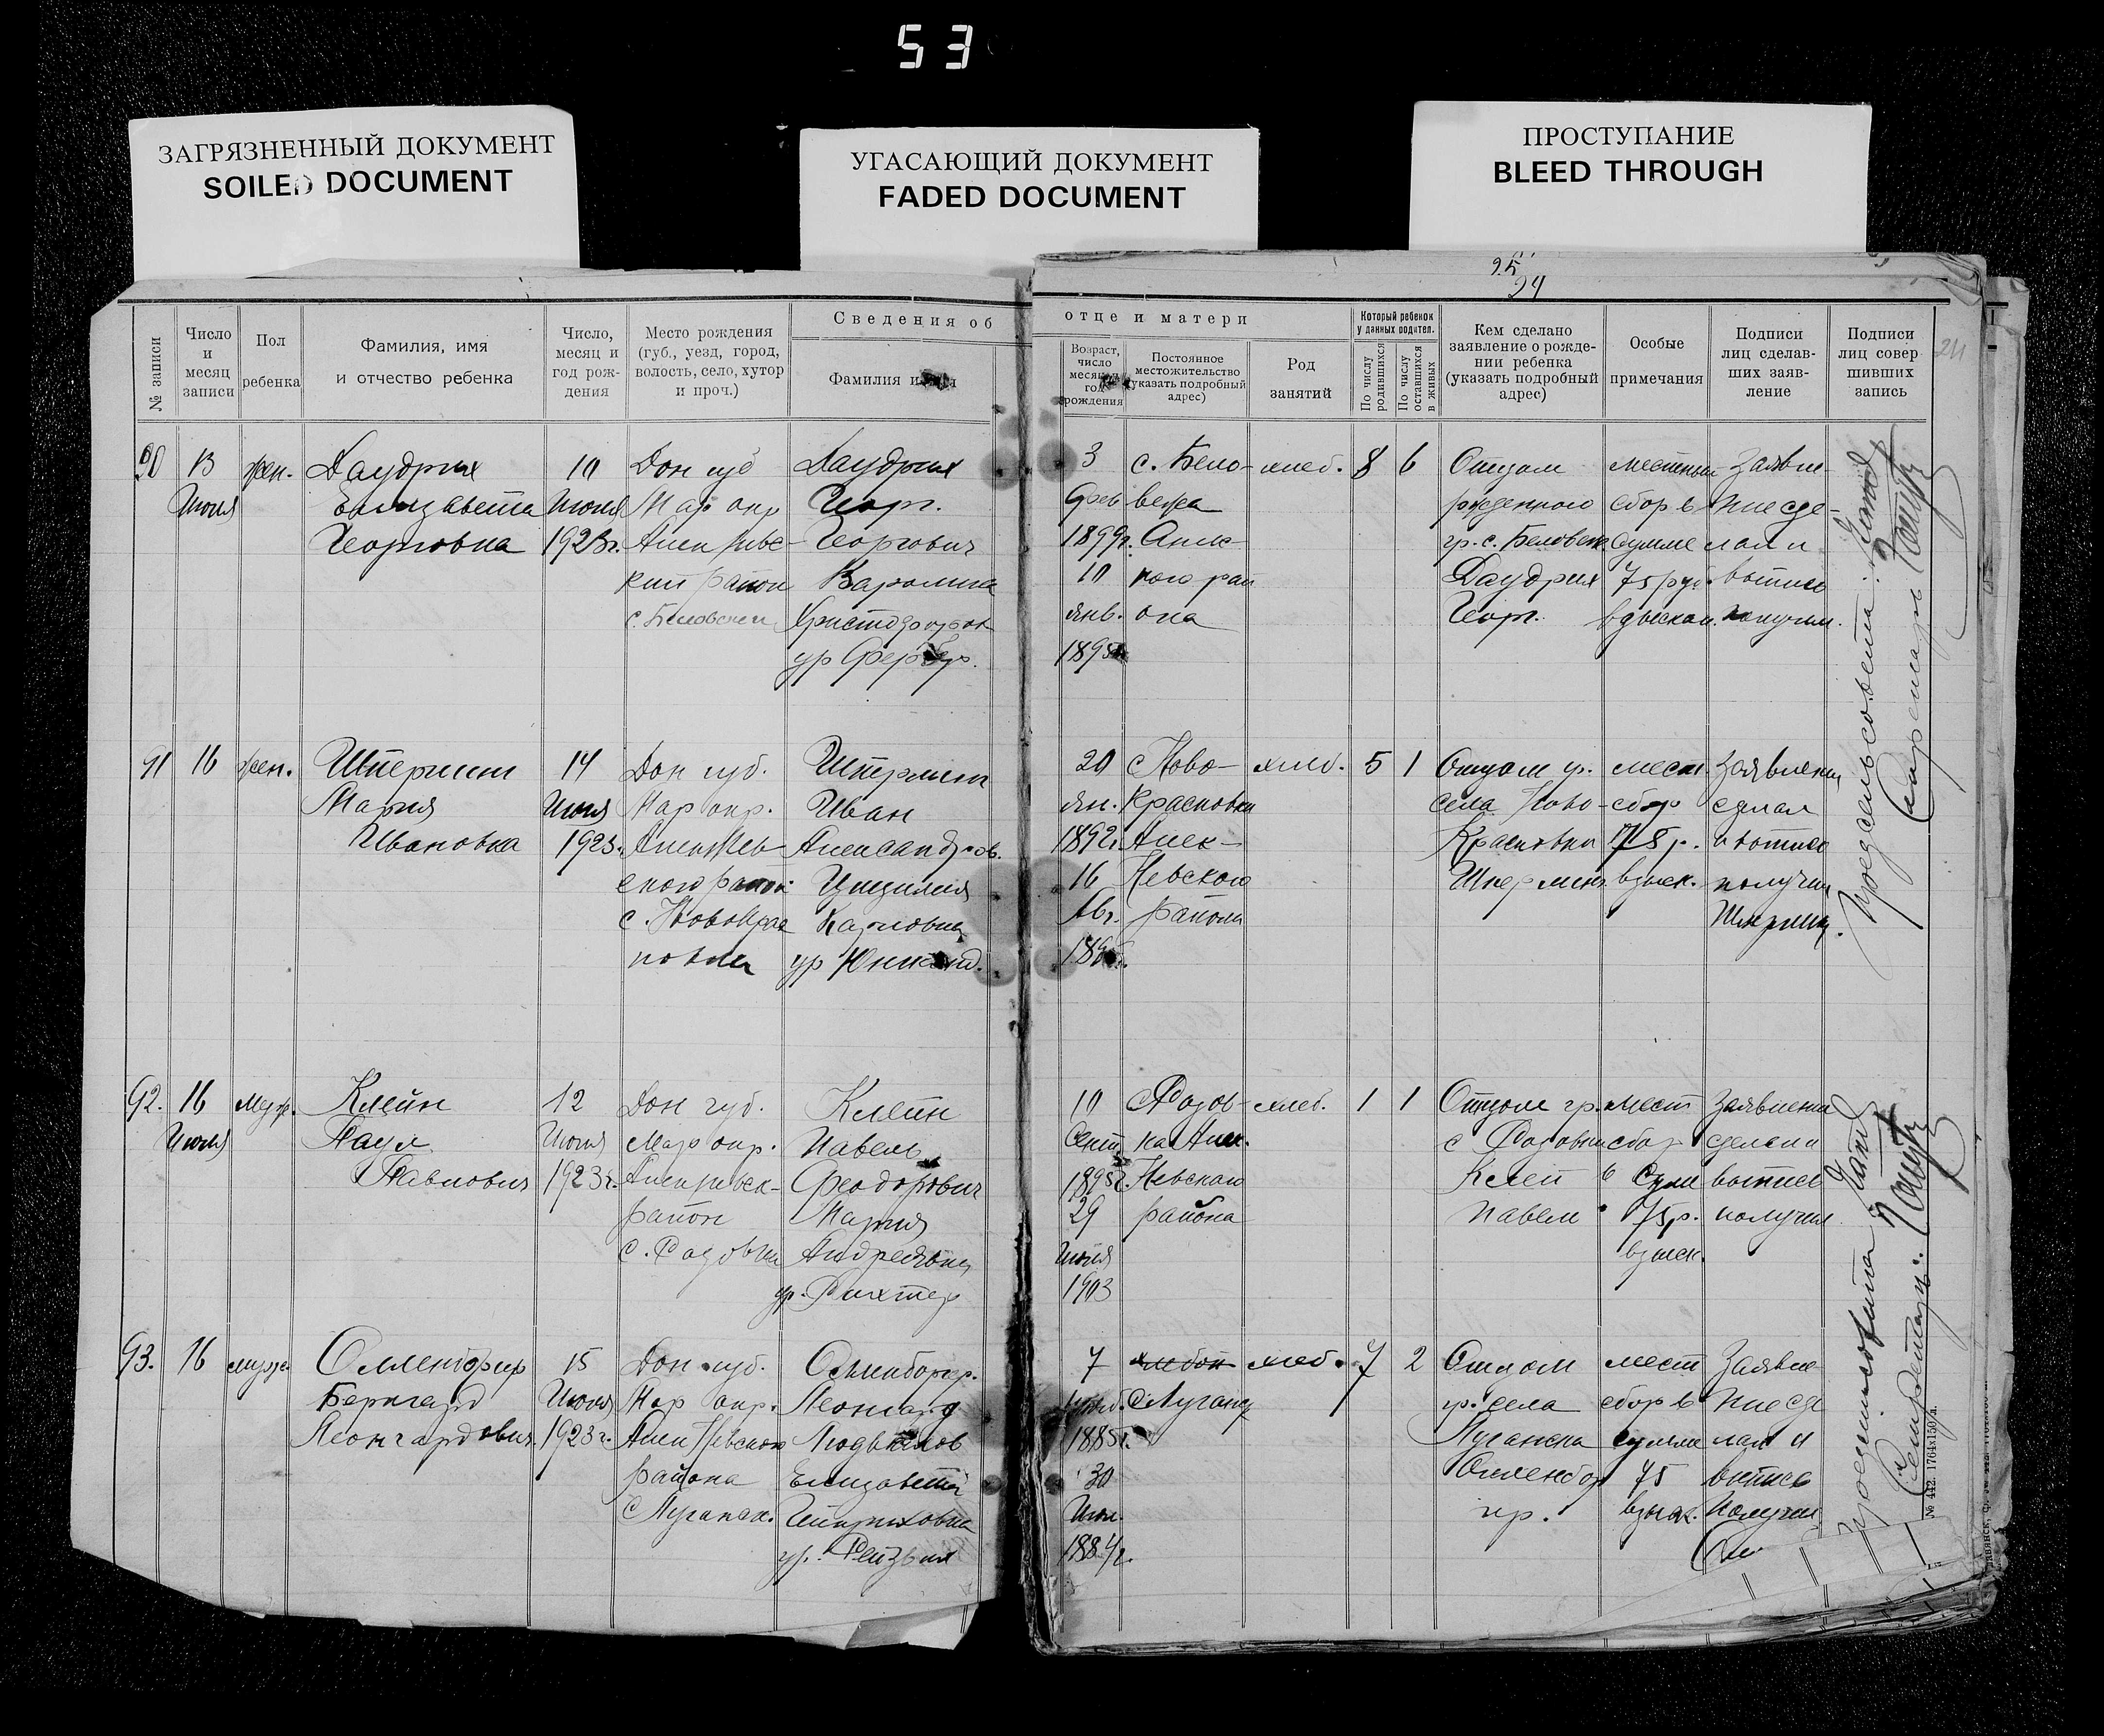 53
ЗАГРЯЗНЕННЫЙ ДОКУМЕНТ
SOILED DOCUMENT
УГАСАЮЩИЙ ДОКУМЕНТ
FADED DOCUMENT
ПРОСТУПАНИЕ
BLEED THROUGH
95
94
24
№ записи
Число и месяц записи
Пол ребенка
Фамилия, имя и отчество ребенка
Число, месяц и год рождения
Место рождения (губ., уезд, город, волость, село, хутор и проч.)
Сведения об отце и матери
Фамилия и
Возраст, число месяц год рождения
Постоянное местожительство (указать подробный адрес)
Род занятий
Который ребенок у данных родител.
По числу родившихся
По числу оставшихся в живых
Кем сделано заявление о рождении ребенка (указать подробный адрес)
Особые примечания
Подписи лиц сделавших заявление
Подписи лиц совершивших запись
90
13
Июля
жен.
Даудрих
Елизавета
Георговна
10
Июля
1923г.
Дон губ
Мар окр
Алек Невс-
кий район
с. Беловской
Даудрих
Георг.
Георгович
Каролина
Христофоров
ур Фербер.
3
Фев
1899г.
10
янв.
1895
с. Бело-
вежа
Алек-
кого рай
она
хлеб.
8
6
Отцом
рожденного
гр. с. Беловеж.
Даудрих
Георг.
местный
сбор в
сумме
75 руб.
взыскан.
Заявле-
ние сде-
лал и
выпись
получил.
91
16
жен.
Штерлинг
Мария
Ивановна
14
Июля
1923.
Дон губ.
Мар окр.
Алек Нев-
ского район
с. Новокрас
новки
Иван
Александров.
Цицилия
Карловна
20
ян.
1892г.
16
Авг.
с Ново-
Красновка
Алек-
Невского
района
хлеб.
5
1
Отцом гр.
села Ново-
Красновки
мест.
сбор
75 р.
взыск.
Заявление
сделал
и выпись
получил
92.
16
Июля
муж.
Клейн
Паул
Павлович
12
Июля
1923г.
Дон губ.
Мар окр.
Алек Невск-
район
с. Розовки
Клейн
Павел
Феодорович
Мария
Андреевна
ур. Рихтер
10
Сент.
1895г.
29
июля
1903
с Розов-
ка Алек.
Невского
района
хлеб.
1
1
Отцом гр.
с Розовки
Клейн
Павел
мест
сбор
в сум
75р.
взыск.
Заявление
сделал и
выпись
получил
93.
16
муж.
Бернгард
Леонгардович
15
Июля
1923г.
Дон губ.
Мар окр.
Алек Невского
района
с Луганск.
Леонгард
Людвигов
Елизавета
Генриховна
ур.
7
1885г.
30
Июл.
1884г.
с Луганск
хлеб.
7
2
Отцом
гр. села
Луганска
мест
сбор в
сумме
75
взыск.
Заявле
ние сде
лал и
выпись
получил
Предсельсовета:
Секретарь
Предсельсовета
Секретарь:
№ 442. 1764х150/а.